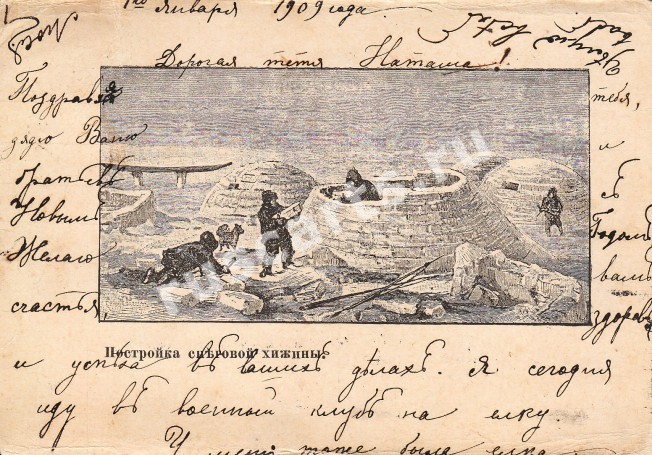 1го января 1909 года.
Дорогая тётя Наташа!
Поздравляя тебя,
дядю Ваню и
братьевъ съ
Новымъ Годомъ
Желаю вамъ
счастья, здоров
Постройка снѣговой хижины.
и успѣха въ вашихъ дѣлахъ. Я сегодня
иду въ военный клубъ на елку.
У меня тоже была елка
ruscards.ru